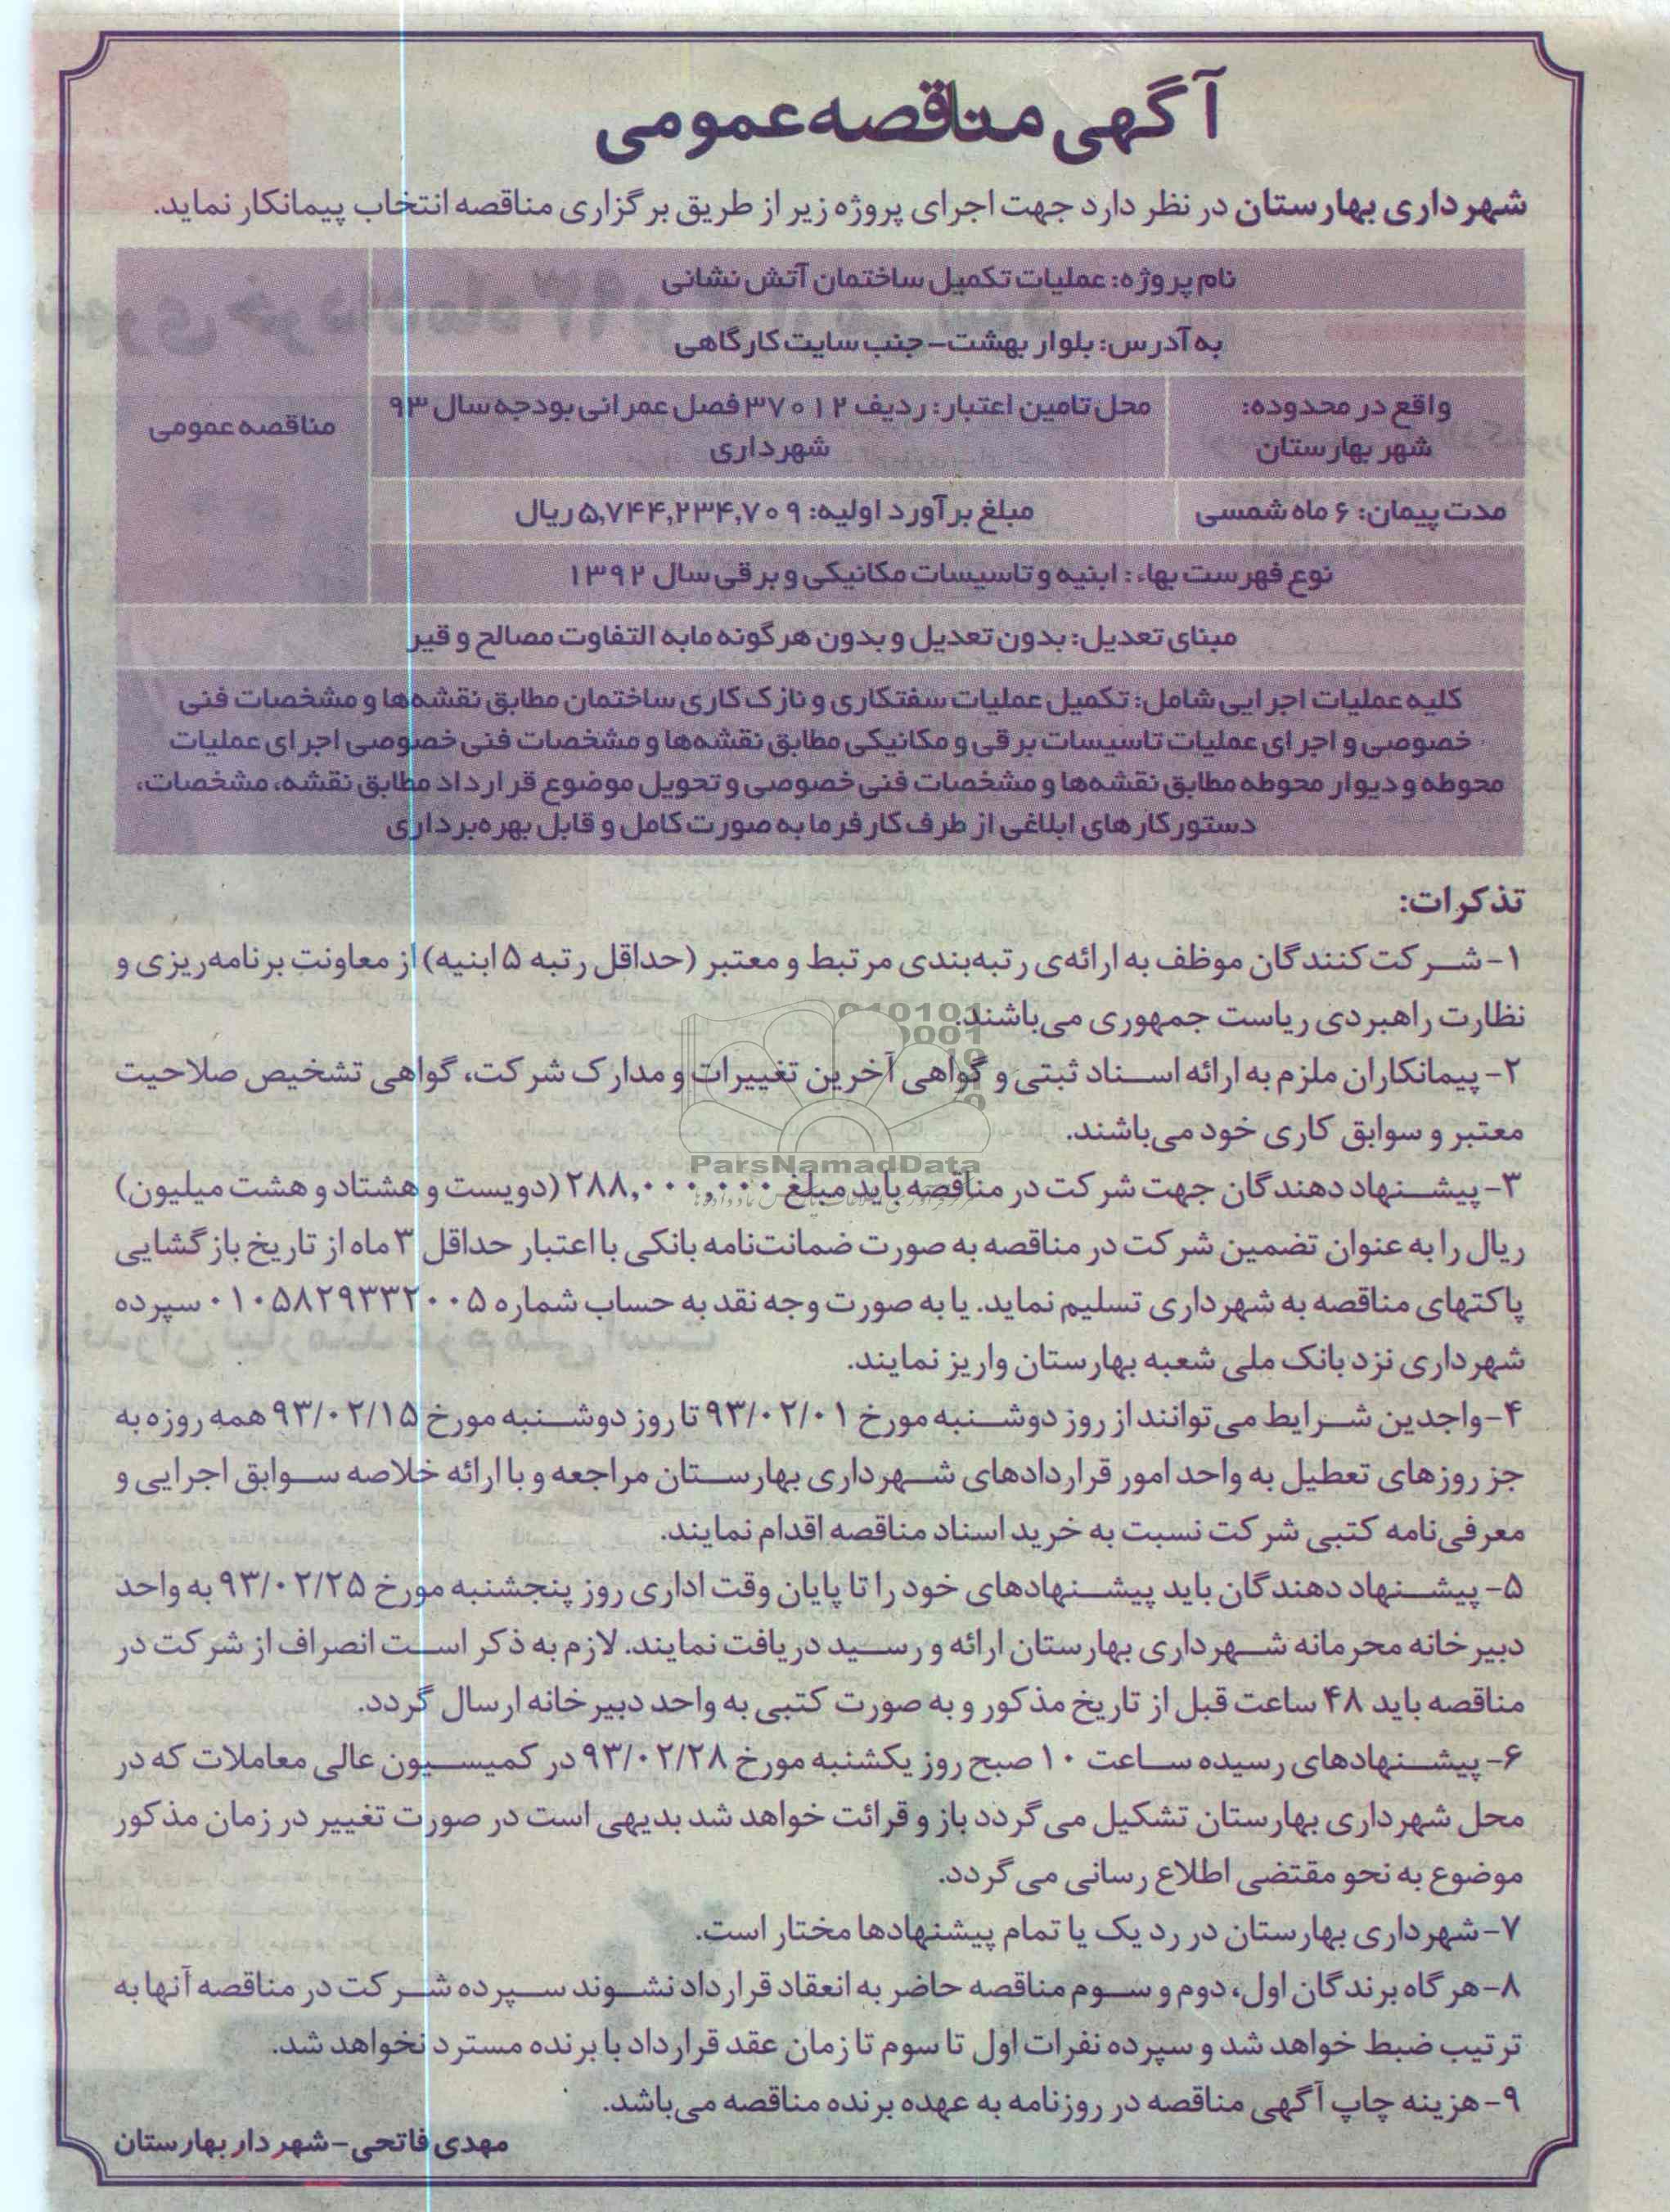 آگهی مناقصه عمومی
شهرداری بهارستان در نظر دارد جهت اجرای پروژه زیر از طریق برگزاری مناقصه انتخاب پیمانکار نماید.
نام پروژه: عملیات تکمیل ساختمان آتش نشانی
به آدرس: بلوار بهشت- جنب سایت کارگاهی
واقع در محدوده:
شهر بهارستان
محل تامین اعتبار: ردیف ۳۷۰۱۲ فصل عمرانی بودجه سال ۹۳
شهرداری
مناقصه عمومی
مدت پیمان: ۶ ماه شمسی
مبلغ برآورد اولیه: ۵,۷۴۴,۲۳۴,۷۰۹ ریال
نوع فهرست بهاء: ابنیه و تاسیسات مکانیکی و برقی سال ۱۳۹۲
مبنای تعدیل: بدون تعدیل و بدون هرگونه مابه التفاوت مصالح و قیر
کلیه عملیات اجرایی شامل: تکمیل عملیات سفتکاری و نازک کاری ساختمان مطابق نقشه‌ها و مشخصات فنی
خصوصی و اجرای عملیات تاسیسات برقی و مکانیکی مطابق نقشه‌ها و مشخصات فنی خصوصی اجرای عملیات
محوطه و دیوار محوطه مطابق نقشه‌ها و مشخصات فنی خصوصی و تحویل موضوع قرارداد مطابق نقشه، مشخصات،
دستورکارهای ابلاغی از طرف کارفرما به صورت کامل و قابل بهره‌برداری
تذکرات:
۱- شرکت کنندگان موظف به ارائه‌ی رتبه‌بندی مرتبط و معتبر (حداقل رتبه ۵ ابنیه) از معاونت برنامه‌ریزی و
نظارت راهبردی ریاست جمهوری می‌باشند.
۲- پیمانکاران ملزم به ارائه اسناد ثبتی و گواهی آخرین تغییرات و مدارک شرکت، گواهی تشخیص صلاحیت
معتبر و سوابق کاری خود می‌باشند.
ParsNamadData
۳- پیشنهاد دهندگان جهت شرکت در مناقصه باید مبلغ ۲۸۸,۰۰۰,۰۰۰ (دویست و هشتاد و هشت میلیون)
ریال را به عنوان تضمین شرکت در مناقصه به صورت ضمانت‌نامه بانکی با اعتبار حداقل ۳ ماه از تاریخ بازگشایی
پاکتهای مناقصه به شهرداری تسلیم نماید. یا به صورت وجه نقد به حساب شماره ۰۱۰۵۸۲۹۳۳۲۰۰۵ سپرده
شهرداری نزد بانک ملی شعبه بهارستان واریز نمایند.
۴- واجدین شرایط می‌توانند از روز دوشنبه مورخ ۹۳/۰۲/۰۱ تا روز دوشنبه مورخ ۹۳/۰۲/۱۵ همه روزه به
جز روزهای تعطیل به واحد امور قراردادهای شهرداری بهارستان مراجعه و با ارائه خلاصه سوابق اجرایی و
معرفی‌نامه کتبی شرکت نسبت به خرید اسناد مناقصه اقدام نمایند.
۵- پیشنهاد دهندگان باید پیشنهادهای خود را تا پایان وقت اداری روز پنجشنبه مورخ ۹۳/۰۲/۲۵ به واحد
دبیرخانه محرمانه شهرداری بهارستان ارائه و رسید دریافت نمایند. لازم به ذکر است انصراف از شرکت در
مناقصه باید ۴۸ ساعت قبل از تاریخ مذکور و به صورت کتبی به واحد دبیرخانه ارسال گردد.
۶- پیشنهادهای رسیده ساعت ۱۰ صبح روز یکشنبه مورخ ۹۳/۰۲/۲۸ در کمیسیون عالی معاملات که در
محل شهرداری بهارستان تشکیل می‌گردد باز و قرائت خواهد شد بدیهی است در صورت تغییر در زمان مذکور
موضوع به نحو مقتضی اطلاع رسانی می‌گردد.
۷- شهرداری بهارستان در رد یک یا تمام پیشنهادها مختار است.
۸- هرگاه برندگان اول، دوم و سوم مناقصه حاضر به انعقاد قرارداد نشوند سپرده شرکت در مناقصه آنها به
ترتیب ضبط خواهد شد و سپرده نفرات اول تا سوم تا زمان عقد قرارداد با برنده مسترد نخواهد شد.
۹- هزینه چاپ آگهی مناقصه در روزنامه به عهده برنده مناقصه می‌باشد.
مهدی فاتحی- شهردار بهارستان